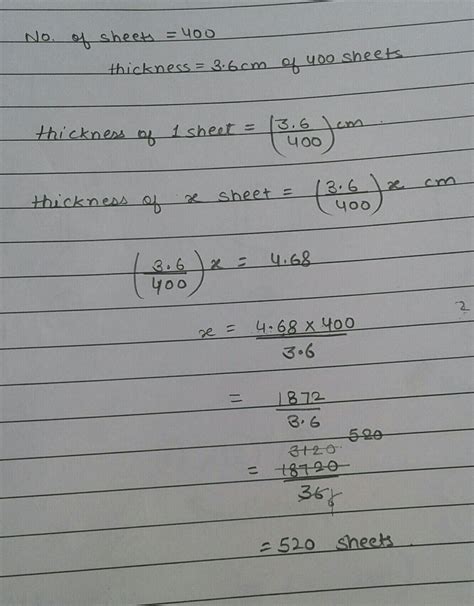 No. of sheets = 400
thickness = 3.6cm of 400 sheets
thickness of 1 sheet = (3.6/400) cm
thickness of x sheet = (3.6/400) x cm
(3.6/400) x = 4.68
2
x = 4.68 × 400 / 3.6
= 1872 / 3.6
520
3120
= 18720 / 36
= 520 sheets.